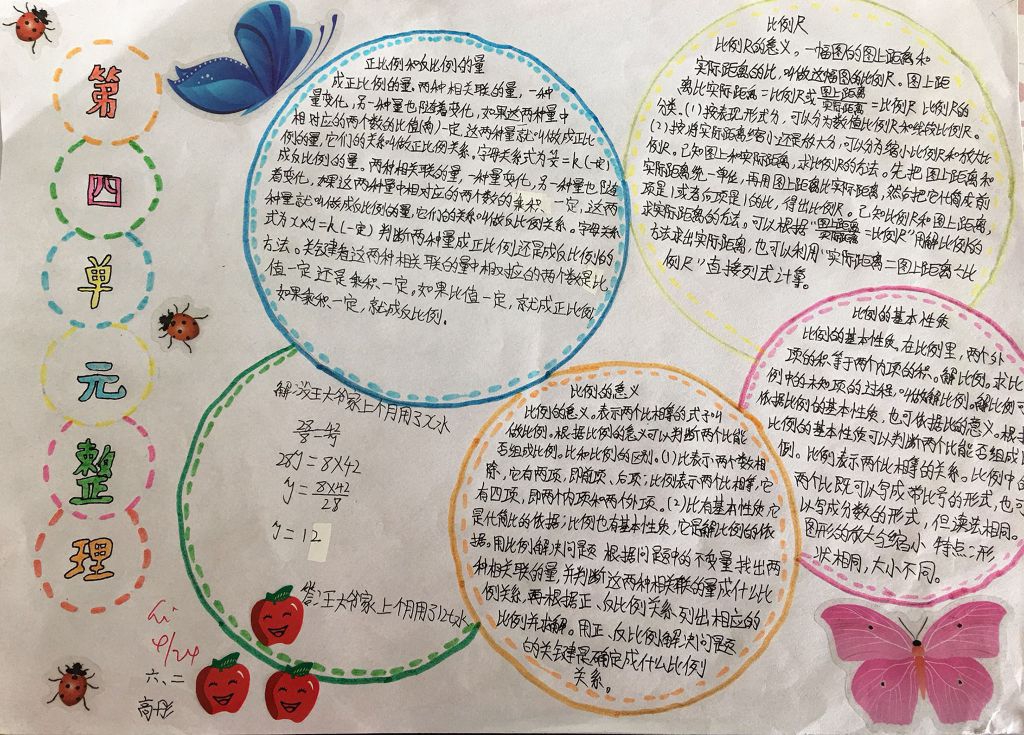 第
四
单
元
整
理
hi
4/24
六、二
高彤
正比例和反比例的量
成正比例的量。两种相关联的量，一种
量变化，另一种量也随着变化，如果这两种量中
相对应的两个数的比值(商)一定，这两种量就叫做成正比
例的量，它们的关系叫做正比例关系。字母关系式为 =k(一定)
成反比例的量。两种相关联的量，一种量变化，另一种量也随
着变化，如果这两种量中相对应的两个数的乘积 一定，这两
种量就叫做成反比例的量，它们的关系叫做反比例关系。字母关系
式为x×y=k(一定) 判断两种量成正比例还是成反比例的
方法。关键看这两种相关联的量中相对应的两个数是比
值一定 还是乘积一定。如果比值一定，就成正比例
如果乘积一定，就成反比例。
比例尺
比例尺的意义。一幅图的图上距离和
实际距离的比，叫做这幅图的比例尺。图上距
离比实际距离=比例尺或图上距离/实际距离=比例尺 比例尺的
分类。(1)按表现形式为，可以分为数值比例尺和线段比例尺。
(2)按将实际距离缩小还是放大为，可以分为缩小比例尺和放大比
例尺。已知图上和实际距离，求比例尺的方法。先把图上距离和
实际距离统一单位，再用图上距离比实际距离，然后把它化简成前
项是1或者后项是1的比，得出比例尺。已知比例尺和图上距离，
求实际距离的方法。可以根据"图上距离/实际距离=比例尺"用解比例的
方法求出实际距离，也可以利用"实际距离=图上距离÷比
例尺"直接列式计算。
比例的基本性质
比例的基本性质。在比例里，两个外
项的积等于两个内项的积。解比例。求比
例中的未知项的过程，叫做解比例。解比例可
依据比例的基本性质，也可依据比的意义。根据
比例的基本性质可以判断两个比能否组成
例。比例表示两个比相等的关系。比例中的
两个比既可以写成带比号的形式，也可
以写成分数的形式，但读法相同。
图形的放大与缩小 特点：形
状相同，大小不同。
解：设王大爷家上个月用了x水
28/8=42/y
28y=8×42
y=8×42/28
y=12
答：王大爷家上个月用了12t水
比例的意义
比例的意义。表示两个比相等的式子叫
做比例。根据比例的意义可以判断两个比能
否组成比例。比和比例的区别。(1)比表示两个数相
除，它有两项，即前项、后项；比例表示两个比相等，它
有四项，即两个内项和两个外项。(2)比有基本性质，它
是化简比的依据；比例也有基本性质，它是解比例的依
据。用比例解决问题 根据问题中的不变量找出两
种相关联的量，并判断这两种相关联的量成什么比
例关系，再根据正、反比例关系，列出相应的
比例并求解。用正、反比例解决问题
的关键是确定成什么比例
关系。